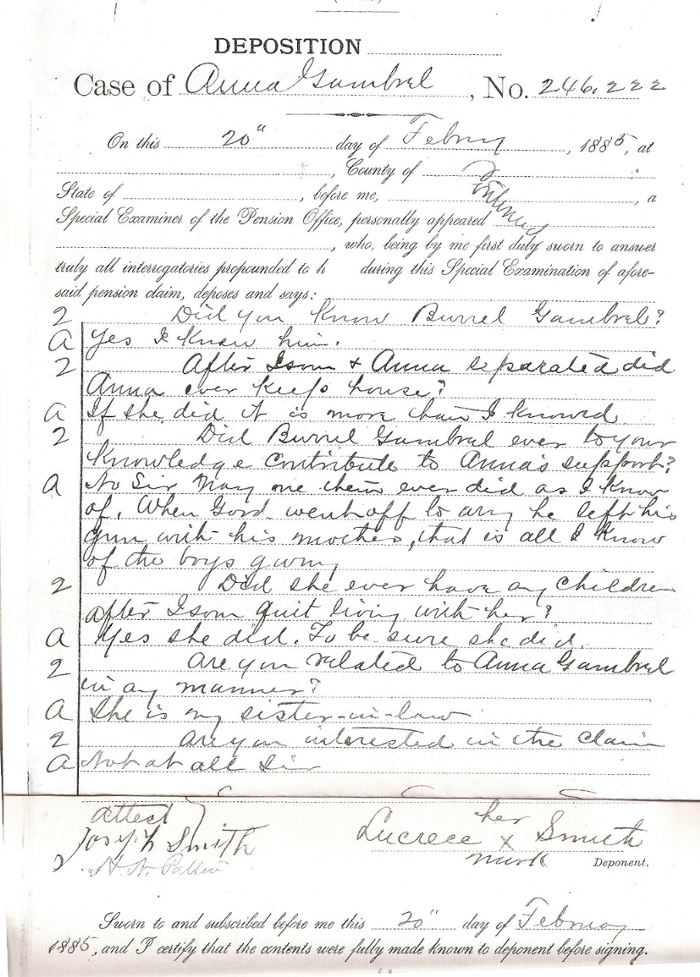 DEPOSITION
Case of Anna Gambrel, No. 246,222
On this 20" day of Febuy, 1885, at
, County of
State of , before me, , a
Special Examiner of the Pension Office, personally appeared
, who, being by me first duly sworn to answer
truly all interrogatories propounded to h during this Special Examination of afore-
said pension claim, deposes and says:
2 Did you know Burrel Gambrel?
a Yes I knew him.
2 After Isom & Anna separated did
Anna ever keep house?
a If she did it is more than I knowed
2 Did Burrel Gambrel ever to your
knowledge contribute to Anna's support?
a No Sir Nary one them ever did as I know
of. When Gord went off to army he left his
gun with his mother, that is all I know
of the boys giving
2 Did she ever have any children
after Isom quit living with her?
a Yes she did. To be sure she did.
2 are you related to Anna Gambrel
in any manner?
a She is my sister-in-law
2 are you interested in the claim
a Not at all Sir
attest
Josph Smith
her
Lucrece x Smith
mark Deponent.
Sworn to and subscribed before me this 20" day of Februay
1885, and I certify that the contents were fully made known to deponent before signing.